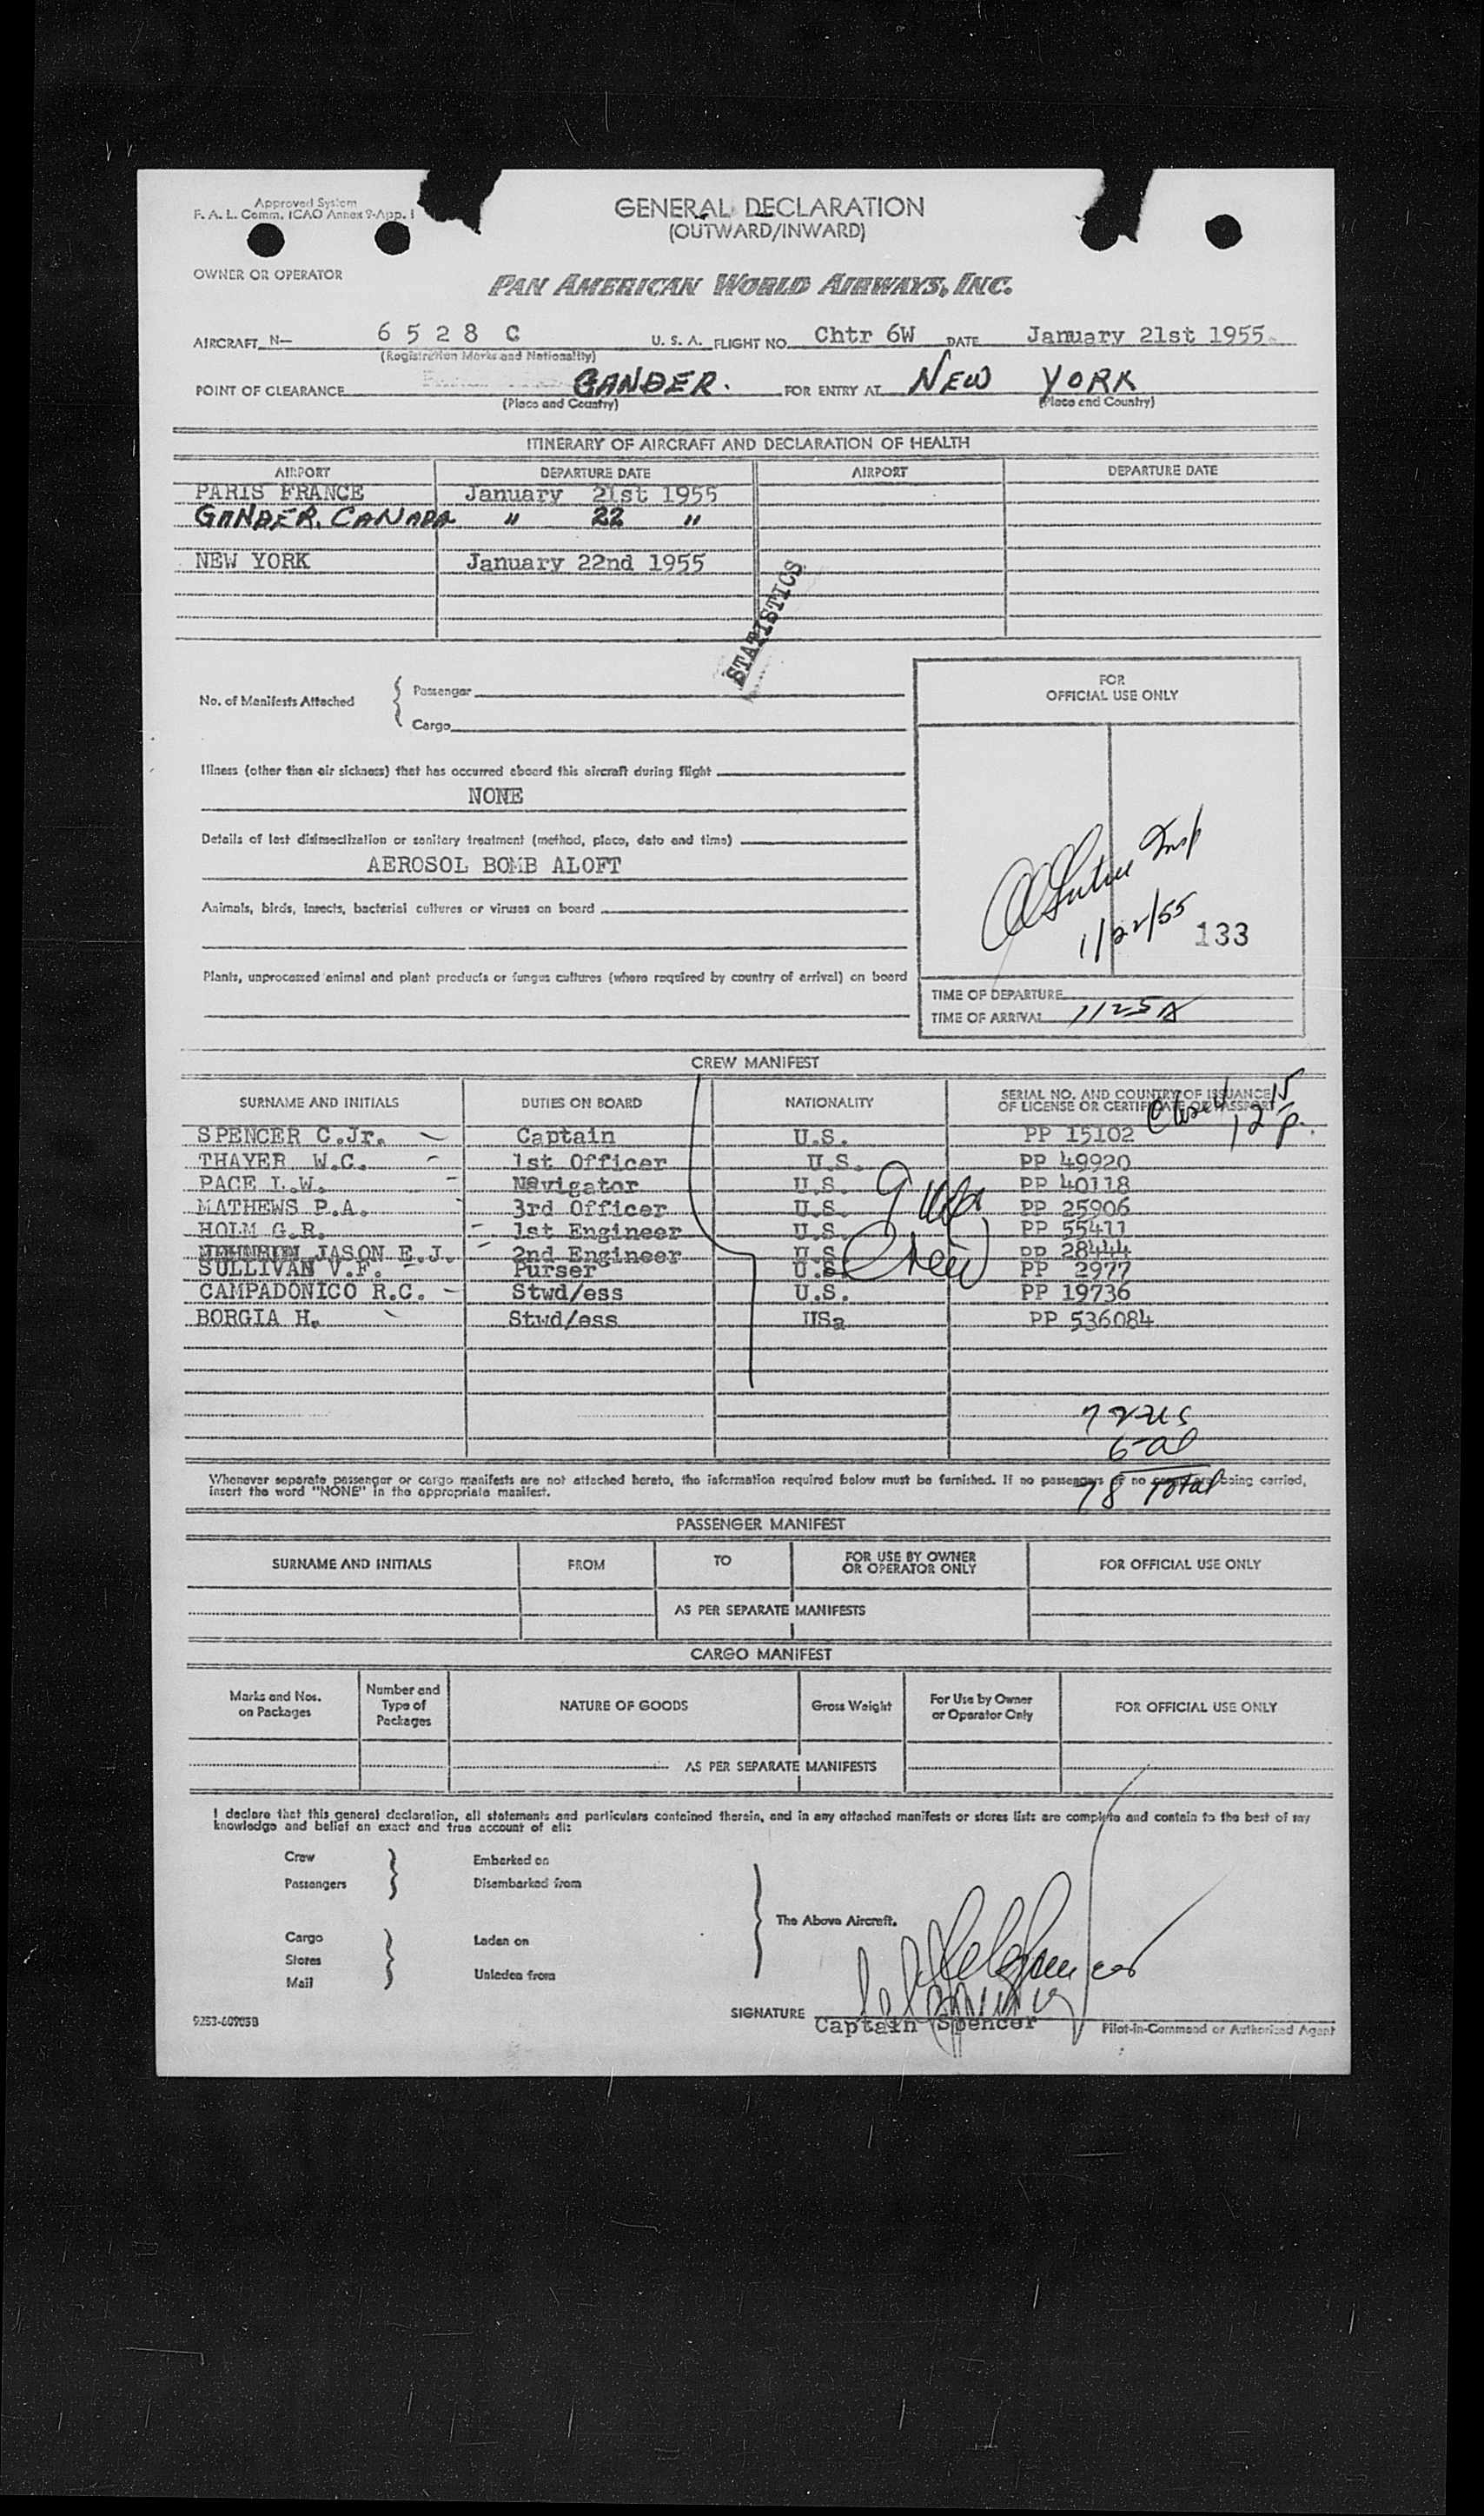 Approved System
F. A. L. Comm. ICAO Annex 9-App. 1
GENERAL DECLARATION
(OUTWARD/INWARD)
OWNER OR OPERATOR
PAN AMERICAN WORLD AIRWAYS, INC.
AIRCRAFT N— 6 5 2 8 C U. S. A. FLIGHT NO. Chtr 6W DATE January 21st 1955
(Registration Marks and Nationality)
POINT OF CLEARANCE GANDER. FOR ENTRY AT NEW YORK
(Place and Country) (Place and Country)
ITINERARY OF AIRCRAFT AND DECLARATION OF HEALTH
AIRPORT DEPARTURE DATE AIRPORT DEPARTURE DATE
PARIS FRANCE January 21st 1955
GANDER, CANADA " 22 "
NEW YORK January 22nd 1955
STATISTICS
No. of Manifests Attached { Passenger
Cargo
FOR
OFFICIAL USE ONLY
Illness (other than air sickness) that has occurred aboard this aircraft during flight
NONE
Details of last disinsectization or sanitary treatment (method, place, date and time)
AEROSOL BOMB ALOFT
Animals, birds, insects, bacterial cultures or viruses on board
Insp
1/22/55 133
Plants, unprocessed animal and plant products or fungus cultures (where required by country of arrival) on board
TIME OF DEPARTURE
TIME OF ARRIVAL 1125A
CREW MANIFEST
SURNAME AND INITIALS DUTIES ON BOARD NATIONALITY SERIAL NO. AND COUNTRY OF ISSUANCE
OF LICENSE OR CERTIFICATE OR PASSPORT
Closed 12 15 p.
SPENCER C.Jr. Captain U.S. PP 15102
THAYER W.C. 1st Officer U.S. PP 49920
PACE L.W. Navigator U.S. PP 40118
MATHEWS P.A. 3rd Officer U.S. PP 25906
HOLM G.R. 1st Engineer U.S. PP 55411
JASON E.J. 2nd Engineer U.S PP 28444
SULLIVAN V.F. Purser U.S PP 2977
CAMPADONICO R.C. Stwd/ess U.S. PP 19736
BORGIA H. Stwd/ess USa PP 536084
9
Crew
72 US
6-al
78 Total
Whenever separate passenger or cargo manifests are not attached hereto, the information required below must be furnished. If no passengers or no cargo are being carried,
insert the word "NONE" in the appropriate manifest.
PASSENGER MANIFEST
SURNAME AND INITIALS FROM TO FOR USE BY OWNER
OR OPERATOR ONLY FOR OFFICIAL USE ONLY
AS PER SEPARATE MANIFESTS
CARGO MANIFEST
Marks and Nos.
on Packages Number and
Type of
Packages NATURE OF GOODS Gross Weight For Use by Owner
or Operator Only FOR OFFICIAL USE ONLY
AS PER SEPARATE MANIFESTS
I declare that this general declaration, all statements and particulars contained therein, and in any attached manifests or stores lists are complete and contain to the best of my
knowledge and belief an exact and true account of all:
Crew Embarked on
Passengers Disembarked from
The Above Aircraft.
Cargo Laden on
Stores
Mail Unladen from
SIGNATURE Captain Spencer Pilot-in-Command or Authorized Agent
9253-60905B